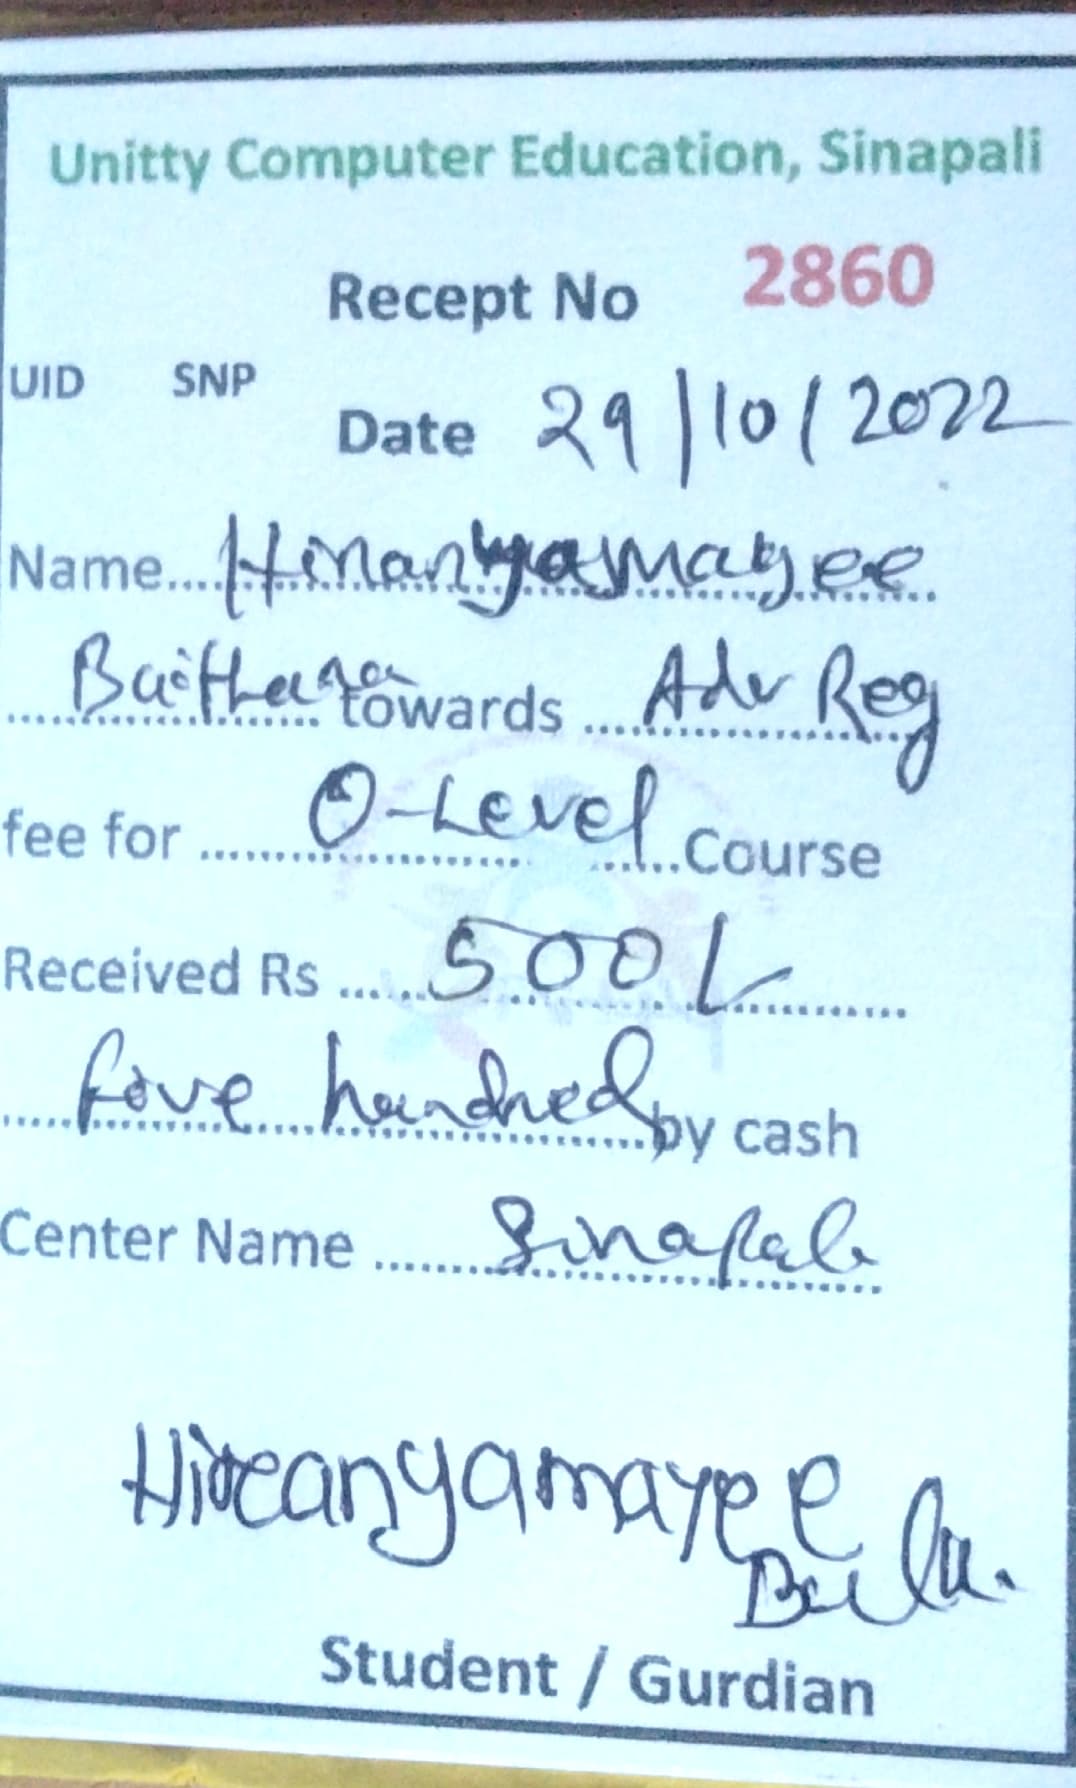 Unitty Computer Education, Sinapali
Recept No 2860
UID SNP
Date 29/10/2022
Name.... Hiranyamayee
Baithara towards .... Adv Reg
fee for .... O-Level .... Course
Received Rs .... 500/-
five hundred by cash
Center Name .... Sinapali
Hireanyamayee
Student / Gurdian